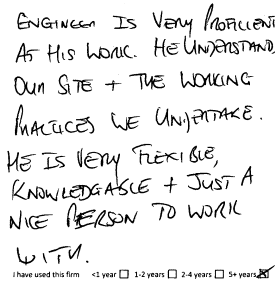 ENGINEER IS VERY PROFICIENT
AT HIS WORK. HE UNDERSTAND
OUR SITE + THE WORKING
PRACTICES WE UNDERTAKE.
HE IS VERY FLEXIBLE,
KNOWLEDGABLE + JUST A
NICE PERSON TO WORK
WITH.
I have used this firm <1 year ☐ 1-2 years ☐ 2-4 years ☐ 5+ years ☒